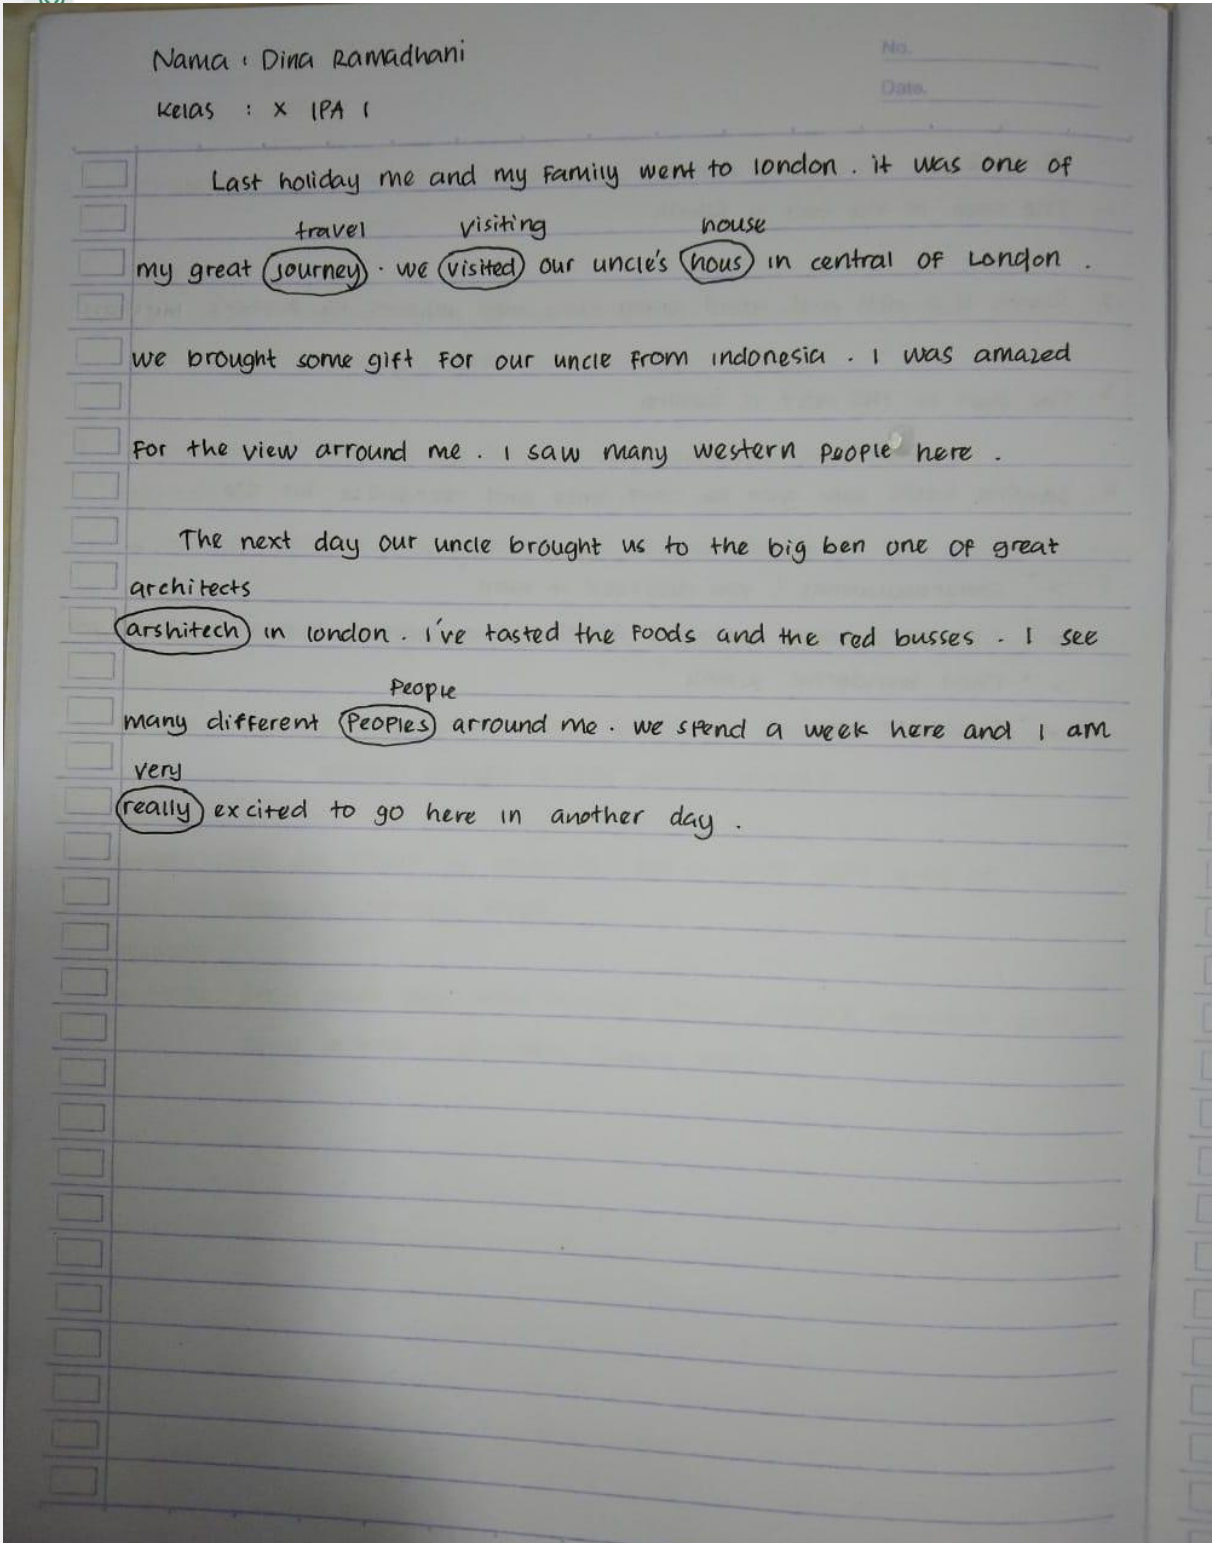 No.
Nama : Dina Ramadhani
Date.
Kelas : X IPA 1
Last holiday me and my Family went to london . it was one of
travel visiting house
my great journey . we visited our uncle's hous in central of London .
we brought some gift for our uncle from indonesia . I was amazed
For the view arround me . I saw many western people here .
The next day our uncle brought us to the big ben one of great
architects
arshitech in london . i've tasted the foods and the red busses . I see
People
many different Peoples arround me . we spend a week here and I am
very
really excited to go here in another day .